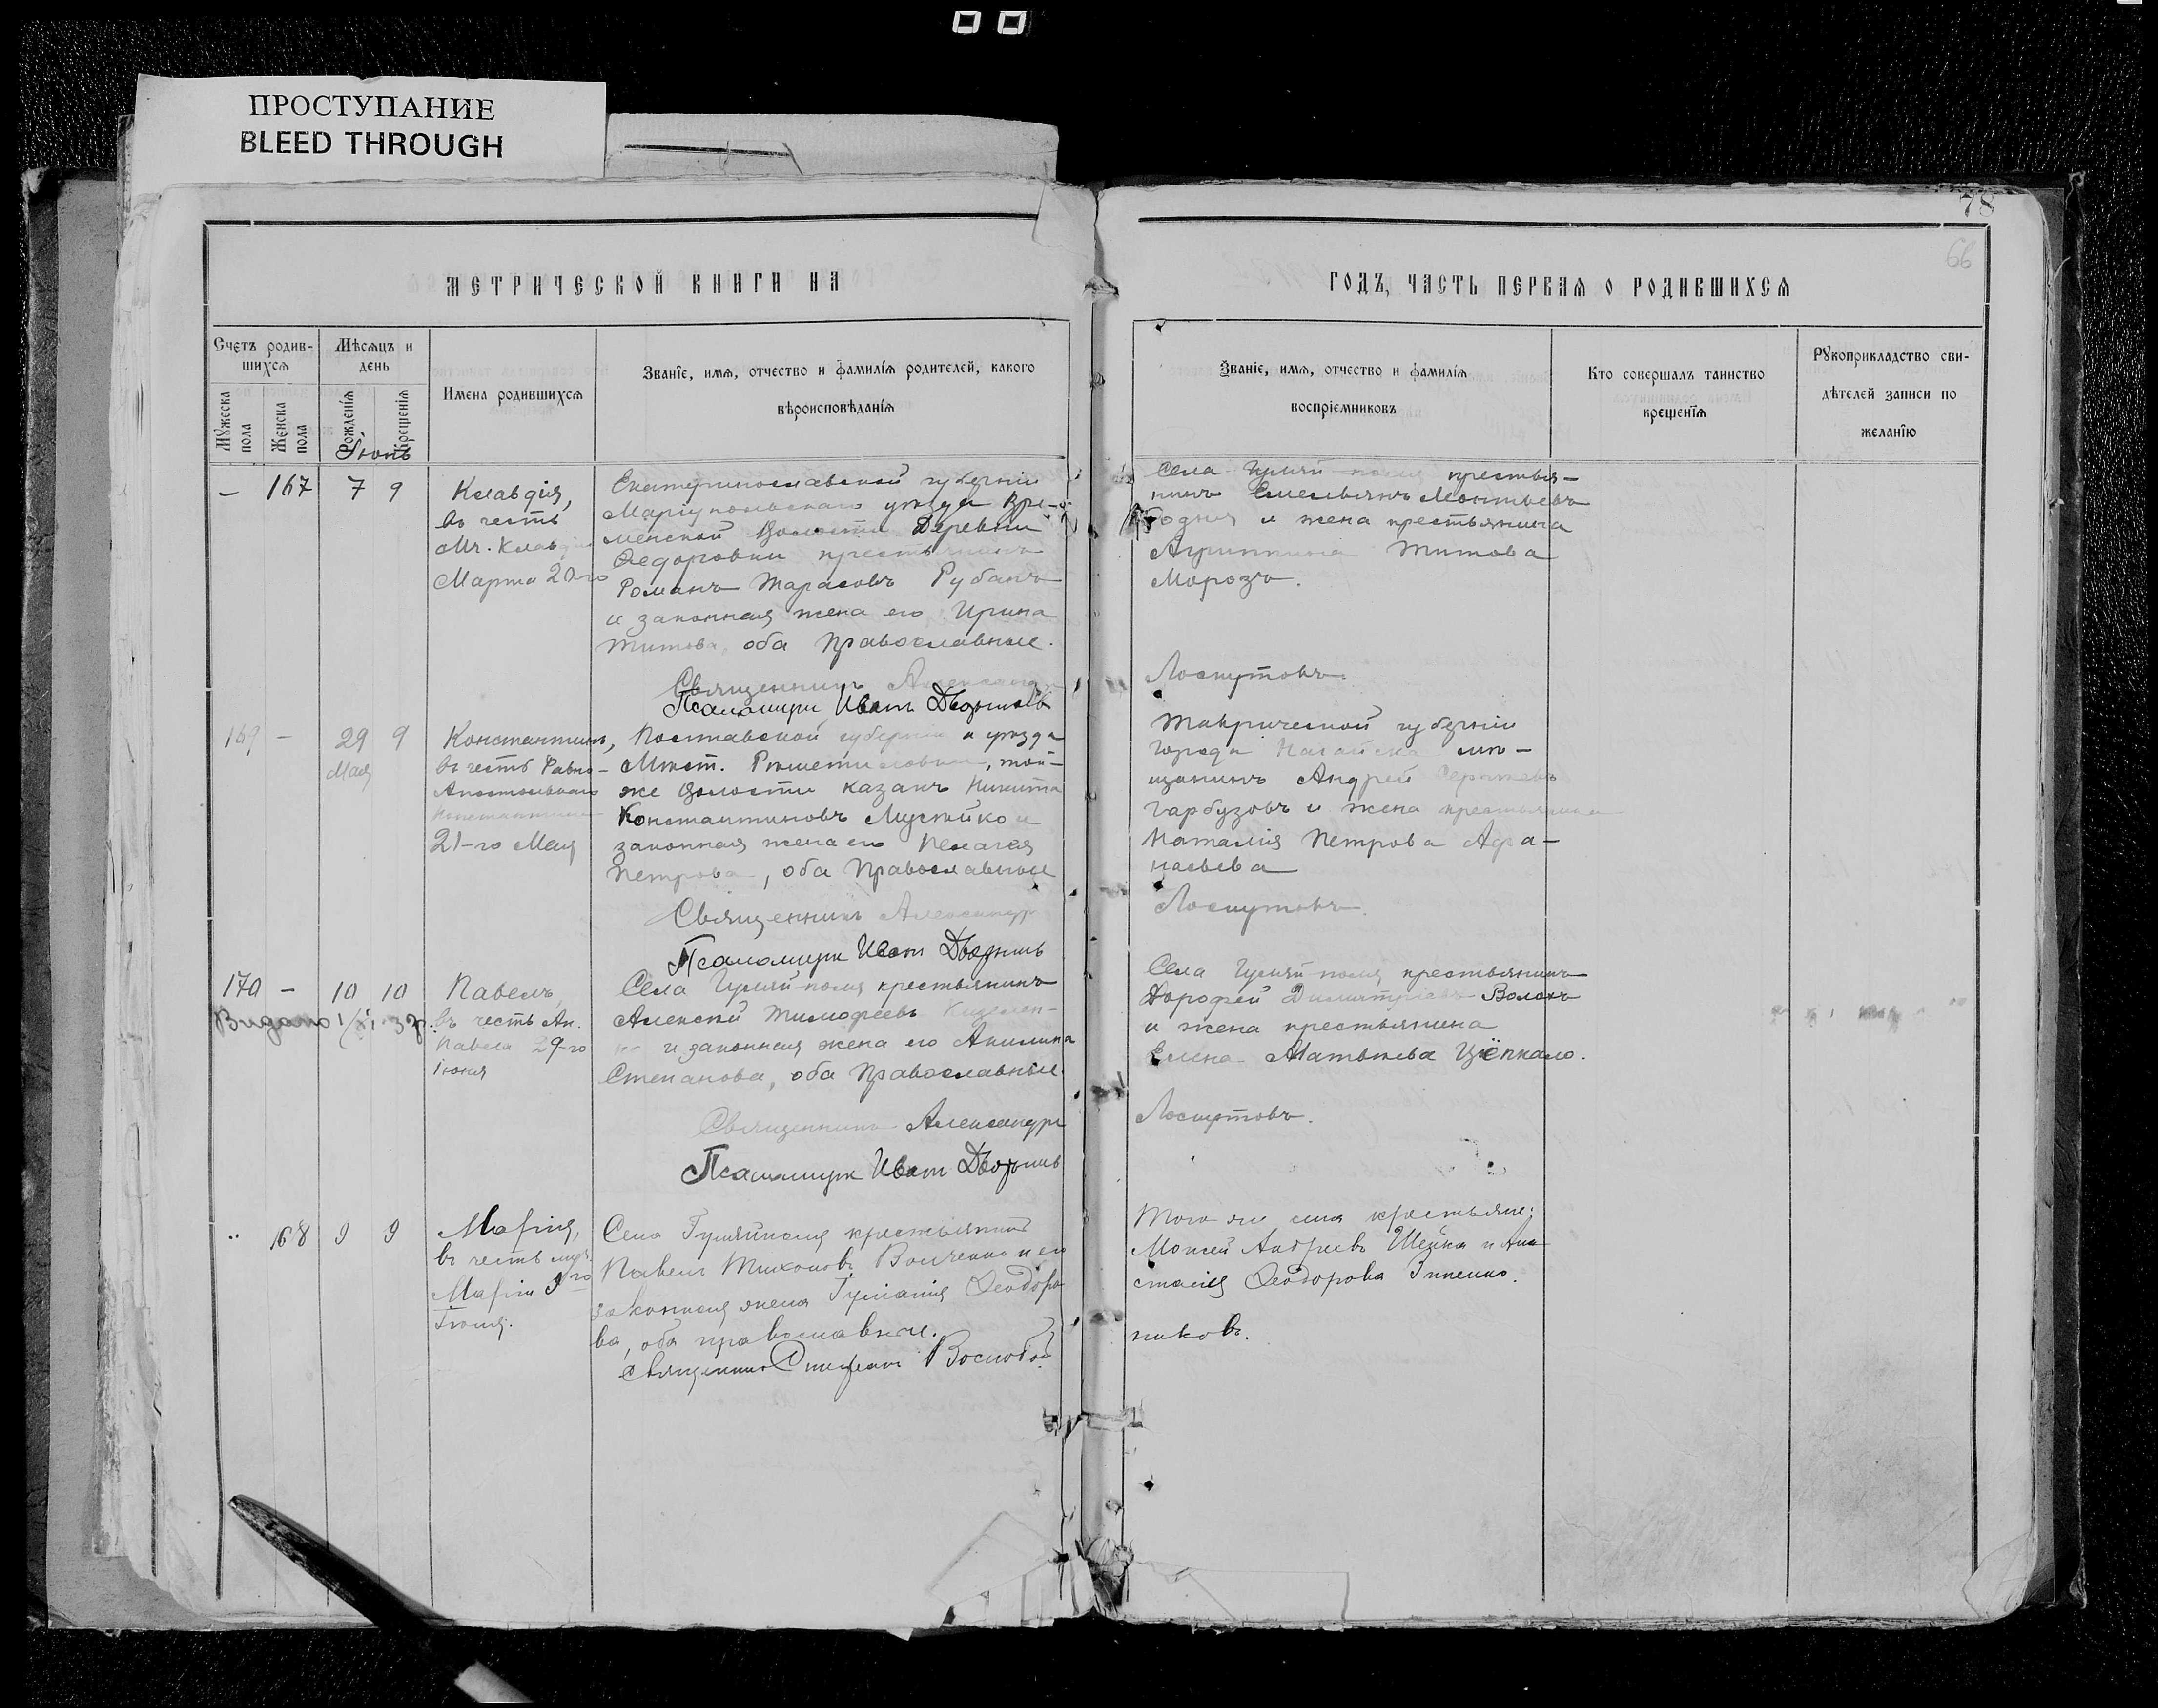 ПРОСТУПАНИЕ
BLEED THROUGH
78
66
МЕТРИЧЕСКОЙ КНИГИ НА
ГОДЪ, ЧАСТЬ ПЕРВАЯ О РОДИВШИХСЯ
Счетъ родив-
шихся
Мужеска пола
Женска пола
Мѣсяцъ и
день
Рожденія
Крещенія
Имена родившихся
Званіе, имя, отчество и фамилія родителей, какого
вѣроисповѣданія
Званіе, имя, отчество и фамилія
воспріемниковъ
Кто совершалъ таинство
крещенія
Рукоприкладство сви-
дѣтелей записи по
желанію
Іюнь
— 167 7 9
Клавдія,
въ честь
Мч. Клавдіи
Марта 20-го
Екатеринославской губерніи
Маріупольскаго уѣзда Вре-
мевской Волости Деревни
Федоровки крестьянинъ
Романъ Тарасовъ Рубанъ
и законная жена его Ирина
Титова, оба Православные.
Священникъ Александръ
Псаломщикъ Иванъ
Села Гуляй-поля крестья-
нинъ Емельянъ Леонтьевъ
и жена крестьянина
Агриппина Титова
Морозъ.
Лоскутовъ.
169 — 29 9
Мая
Константинъ,
въ честь Равно-
Апостольнаго
Константина
21-го Мая
Полтавской губерніи и уѣзда
Мѣст. Рѣшетиловки, той-
же Волости казакъ Никита
Константиновъ Мусѣйко и
законная жена его Пелагея
Петрова, оба Православные
Священникъ Александръ
Псаломщикъ Иванъ
Таврической губерніи
города Ногайска мѣ-
щанинъ Андрей Сергѣевъ
Гарбузовъ и жена крестьянина
Наталія Петрова Афа-
насьева
Лоскутовъ.
170 — 10 10
Видано
Павелъ,
въ честь Ап.
Павла 29-го
Іюня
Села Гуляй-поля крестьянинъ
Алексѣй Тимофеевъ
и законная жена его Акилина
Степанова, оба Православные.
Священникъ Александръ
Псаломщикъ Иванъ
Села Гуляй-поля, крестьянинъ
Дорофей Димитріевъ Волокъ
и жена крестьянина
Елена Матвѣева Цёпкало.
Лоскутовъ.
168 9 9
Марія,
въ честь муч.
Маріи 9го
Іюня.
Села Гуляйполя крестьянинъ
Павелъ Тихоновъ Волченко и его
законная жена Гуліанія Ѳеодоро-
ва, оба православные.
Священникъ Стефанъ Воскобой-
Того же села крестьяне:
Моисей Андреевъ Шейко и Ана-
стасія Ѳеодорова Зинченко.
никовъ.